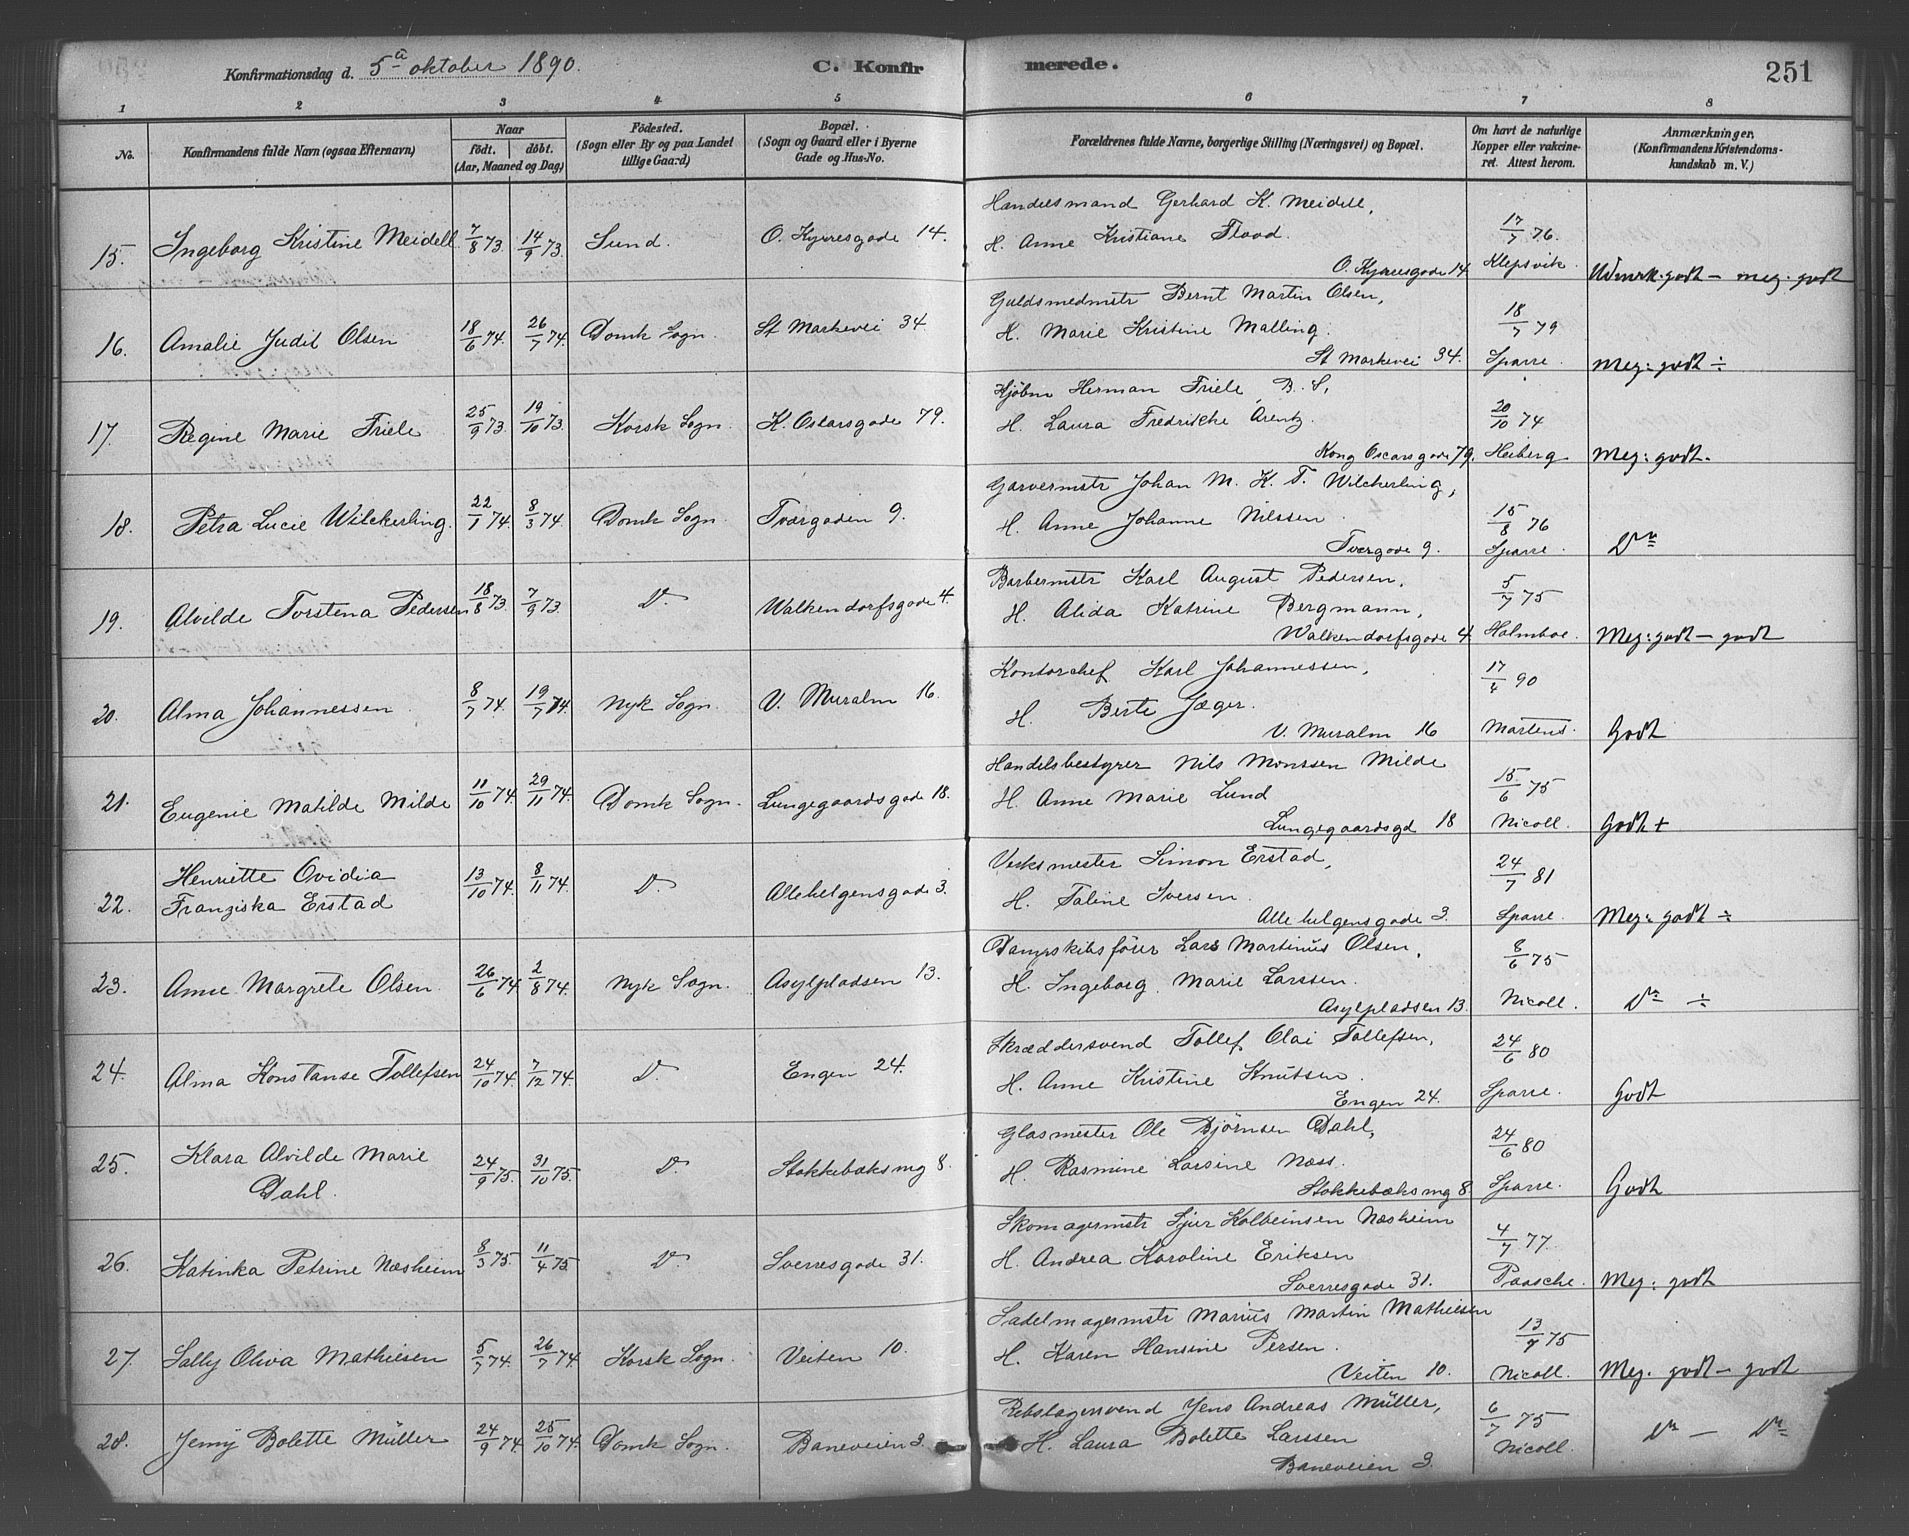 Konfirmationsdag d. 5te oktober 1890.
C. Konfirmerede.
251
1 2 3 4 5 6 7 8
No.
Konfirmandens fulde Navn (ogsaa Efternavn)
Naar
födt. döbt.
(Aar, Maaned og Dag)
Födested.
(Sogn eller By og paa Landet
tillige Gaard)
Bopæl.
(Sogn og Gaard eller i Byerne
Gade og Hus-No.
Forældrenes fulde Navne, borgerlige Stilling (Næringsvei) og Bopæl.
Om havt de naturlige
Kopper eller vakcine-
ret. Attest herom.
Anmærkninger,
(Konfirmandens Kristendoms-
kundskab m. V.)
15. Ingeborg Kristine Meidell 7/8 73. 14/9 73. Sund. O. Kyrresgade 14.
Handelsmand Gerhard K. Meidell,
H. Anne Kristiane Flood.
O. Kyrresgade 14
17/7 76.
Klepsvik.
Udmrk. godt - meg. godt
16. Amalie Judit Olsen 18/6 74. 26/7 74. Domk Sogn. St Markevei 34
Guldsmedmstr Bernt Martin Olsen,
H. Marie Kristine Malling.
St Markevei 34.
18/7 79
Sparre.
Meg: godt ÷
17. Regine Marie Friele 25/9 73. 19/10 73. Korsk Sogn. K. Oscarsgade 79.
Kjøbm Herman Friele, D. S,
H. Laura Fredrikke Arentz.
Kong Oscarsgade 79.
20/10 74
Heiberg
Meg: godt.
18. Petra Lucie Wilckerling. 22/1 74. 8/3 74. Domk Sogn. Tværgaden 9.
Garvermstr Johan M. K. T. Wilckerling,
H. Anne Johanne Nilssen.
Tværgade 9.
15/8 76
Sparre.
Do
19. Alvilde Torstena Pedersen 18/8 73. 7/9 73. Do. Walkendorfsgade 4.
Barbermstr Karl August Pedersen,
H. Alida Katrine Bergmann,
Walkendorfsgade 4
5/7 75
Holmboe.
Meg: godt - godt
20. Alma Johannessen 8/7 74. 19/7 74. Nyk Sogn. V. Muralm 16.
Kontorchef Karl Johannessen,
H. Berte Jæger.
V. Muralm 16
17/4 90
Martens.
Godt
21. Eugenie Matilde Milde 11/10 74. 29/11 74. Domk Sogn. Lungegaardsgade 18.
Handelsbestyrer Nils Monssen Milde
H. Anne Marie Lund
Lungegaardsgd 18
15/6 75
Nicoll.
Godt +
22. Henriette Ovidia
Franziska Erstad 13/10 74. 8/11 74. Do. Allehelgensgade 3.
Verksmester Simon Erstad,
H. Taline Iversen.
Alle helgensgade 3.
24/7 81
Sparre.
Meg: godt ÷
23. Anne Margrete Olsen. 26/6 74. 2/8 74. Nyk Sogn. Asylpladsen 13.
Dampskibsfører Lars Martinus Olsen,
H. Ingeborg Marie Larssen.
Asylpladsen 13.
8/6 75
Nicoll.
Do ÷
24. Alma Konstanse Tollefsen 24/10 74. 7/12 74. Do. Engen 24.
Skræddersvend Tollef Olai Tollefsen,
H. Anne Kristine Knutsen.
Engen 24.
24/6 80
Sparre.
Godt
25. Klara Alvilde Marie
Dahl. 24/9 75. 31/10 75. Do. Stokkebæksmg 8.
Glasmester Ole Bjørnsen Dahl,
H. Rasmine Larsine Næss.
Stokkebæksmg 8.
24/6 80
Sparre.
Godt
26. Katinka Petrine Næsheim 8/3 75. 11/4 75. Do. Sverresgade 31.
Skomagermstr Sjur Kolbeinsen Næsheim
H. Andrea Karoline Eriksen
Sverresgade 31.
4/7 77.
Paasche.
Meg: godt
27. Sally Oliva Mathiesen 5/7 74. 26/7 74. Korsk Sogn. Veiten 10.
Sadelmagermstr Marius Martin Mathiesen
H. Karen Hansine Persen.
Veiten 10.
13/7 75
Nicoll.
Meg. godt - godt
28. Jenny Bolette Müller 24/9 74. 25/10 74. Domk Sogn. Baneveien 3.
Rebslagersvend Jens Andreas Müller,
H. Laura Bolette Larssen
Baneveien 3.
6/7 75
Nicoll.
Do - Do